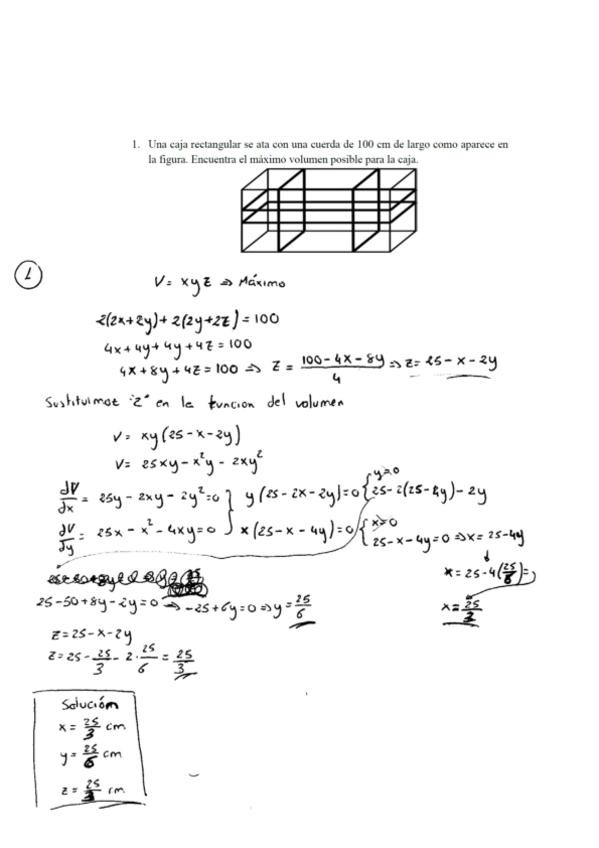 1. Una caja rectangular se ata con una cuerda de 100 cm de largo como aparece en
la figura. Encuentra el máximo volumen posible para la caja.
1
V = xyz ⇒ Máximo
2(2x+2y)+2(2y+2z)=100
4x+4y+4y+4z=100
4x+8y+4z=100 ⇒ z = (100-4x-8y)/4 ⇒ z=25-x-2y
Sustituimos "z" en la funcion del volumen
V= xy(25-x-2y)
V= 25xy-x²y-2xy²
dV/dx = 25y-2xy-2y²=0 } y(25-2x-2y)=0 { y=0 25-2(25-4y)-2y
dV/dy = 25x-x²-4xy=0 } x(25-x-4y)=0 { x=0 25-x-4y=0 ⇒ x=25-4y
x=25-4(25/6)=
25-50+8y-2y=0 ⇒ -25+6y=0 ⇒ y=25/6
x=25/3
z=25-x-2y
z=25-25/3-2·25/6=25/3
Solución
x=25/3 cm
y=25/6 cm
z=25/3 cm